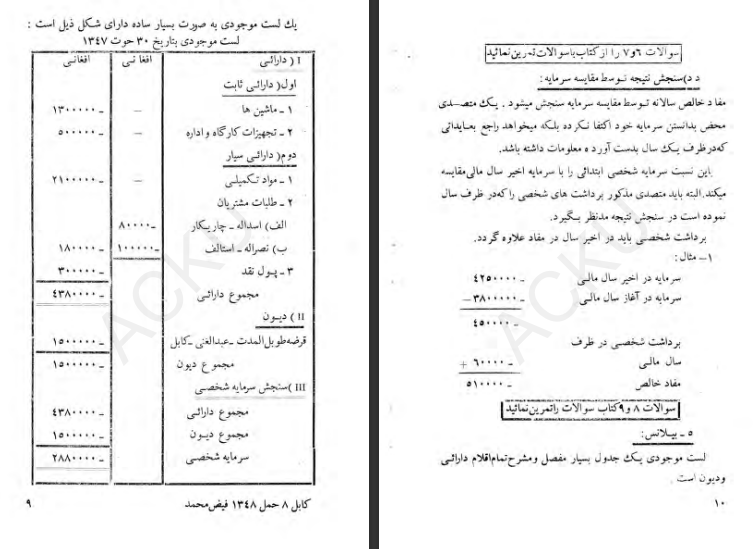 یك لست موجودی به صورت بسیار ساده دارای شکل ذیل است :
لست موجودی بتاریخ ۳۰ حوت ۱۳۴۷
I (دارائی افغانی افغانی
اول) دارائی ثابت
۱ ـ ماشین ها — ۱۳۰۰۰۰۰ـ
۲ ـ تجهیزات کارگاه و اداره — ۵۰۰۰۰۰ـ
دوم) دارائی سیار
۱ ـ مواد تکمیلی — ۲۱۰۰۰۰۰ـ
۲ ـ طلبات مشتریان
الف) اسداله ـ چاریکار ۸۰۰۰۰ـ
ب) نصراله ـ استالف ۱۰۰۰۰۰ـ ۱۸۰۰۰۰ـ
۳ ـ پول نقد ۳۰۰۰۰۰ـ
مجموع دارائی ۴۳۸۰۰۰۰ـ
II ) دیون
قرضه طویل المدت ـ عبدالغنی ـ کابل ۱۵۰۰۰۰۰ـ
مجموع دیون ۱۵۰۰۰۰۰ـ
III ) سنجش سرمایه شخصی
مجموع دارائی ۴۳۸۰۰۰۰ـ
مجموع دیون ۱۵۰۰۰۰۰ـ
سرمایه شخصی ۲۸۸۰۰۰۰ـ
کابل ۸ حمل ۱۳۴۸ فیض محمد
۹
سوالات ۶و۷ را از کتاب با سوالات تمرین نمائید
د د) سنجش نتیجه توسط مقایسه سرمایه :
مفاد خالص سالانه توسط مقایسه سرمایه سنجش میشود . یک متصدی
محض بدانستن سرمایه خود اکتفا نکرده بلکه میخواهد راجع بعایداتی
که در ظرف یک سال بدست آورده معلومات داشته باشد.
باین نسبت سرمایه شخصی ابتدائی را با سرمایه اخیر سال مالی مقایسه
میکند. البته باید متصدی مذکور برداشت های شخصی را که در ظرف سال
نموده است در سنجش نتیجه مدنظر بگیرد.
برداشت شخصی باید در اخیر سال در مفاد علاوه گردد.
۱– مثال :
سرمایه در اخیر سال مالی ۴۲۵۰۰۰۰ـ
سرمایه در آغاز سال مالی ۳۸۰۰۰۰۰ـ —
۴۵۰۰۰۰ـ
برداشت شخصی در ظرف
سال مالی ۶۰۰۰۰ـ +
مفاد خالص ۵۱۰۰۰۰ـ
سوالات ۸ و ۹ کتاب سوالات را تمرین نمائید
۵ ـ بیلانس :
لست موجودی یک جدول بسیار مفصل و مشرح تمام اقلام دارائی
و دیون است .
۱۰
ACKU
ACKU